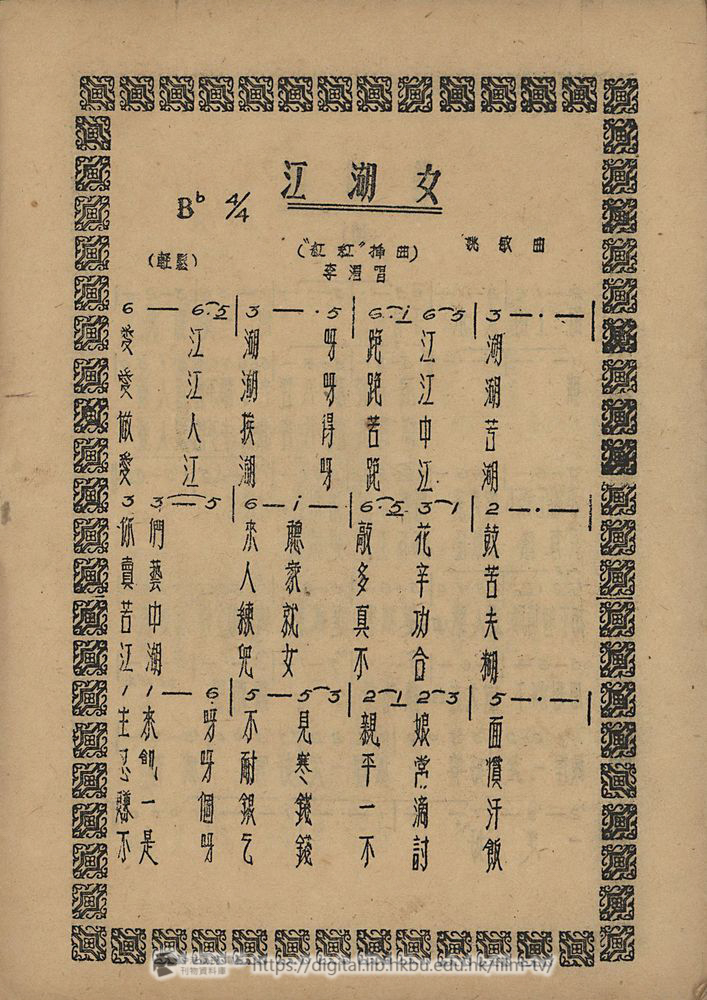 江湖女
B♭ 4/4
("紅紅"插曲) 姚敏 曲
(輕鬆) 李湄唱
6 — 6 5 | 3 — · 5 | 6 · i 6 5 | 3 — · — |
愛江湖呀跑江湖
愛江湖呀跑江湖
做人挨得苦中苦
愛江湖呀跑江湖
3 3 — 5 | 6 — i — | 6 · 5 3 1 | 2 — · — |
你們來聽敲花鼓
賣藝人家多辛苦
苦中練就真功夫
江湖兒女不合糊
1 1 — 6 | 5 — 5 3 | 2 1 2 3 | 5 — · — |
生來呀不見親娘面
忍飢呀耐寒平常慣
賺一個銀錢一滴汗
不是呀乞錢不討飯
刊物資料庫
https://digital.lib.hkbu.edu.hk/film-tv/